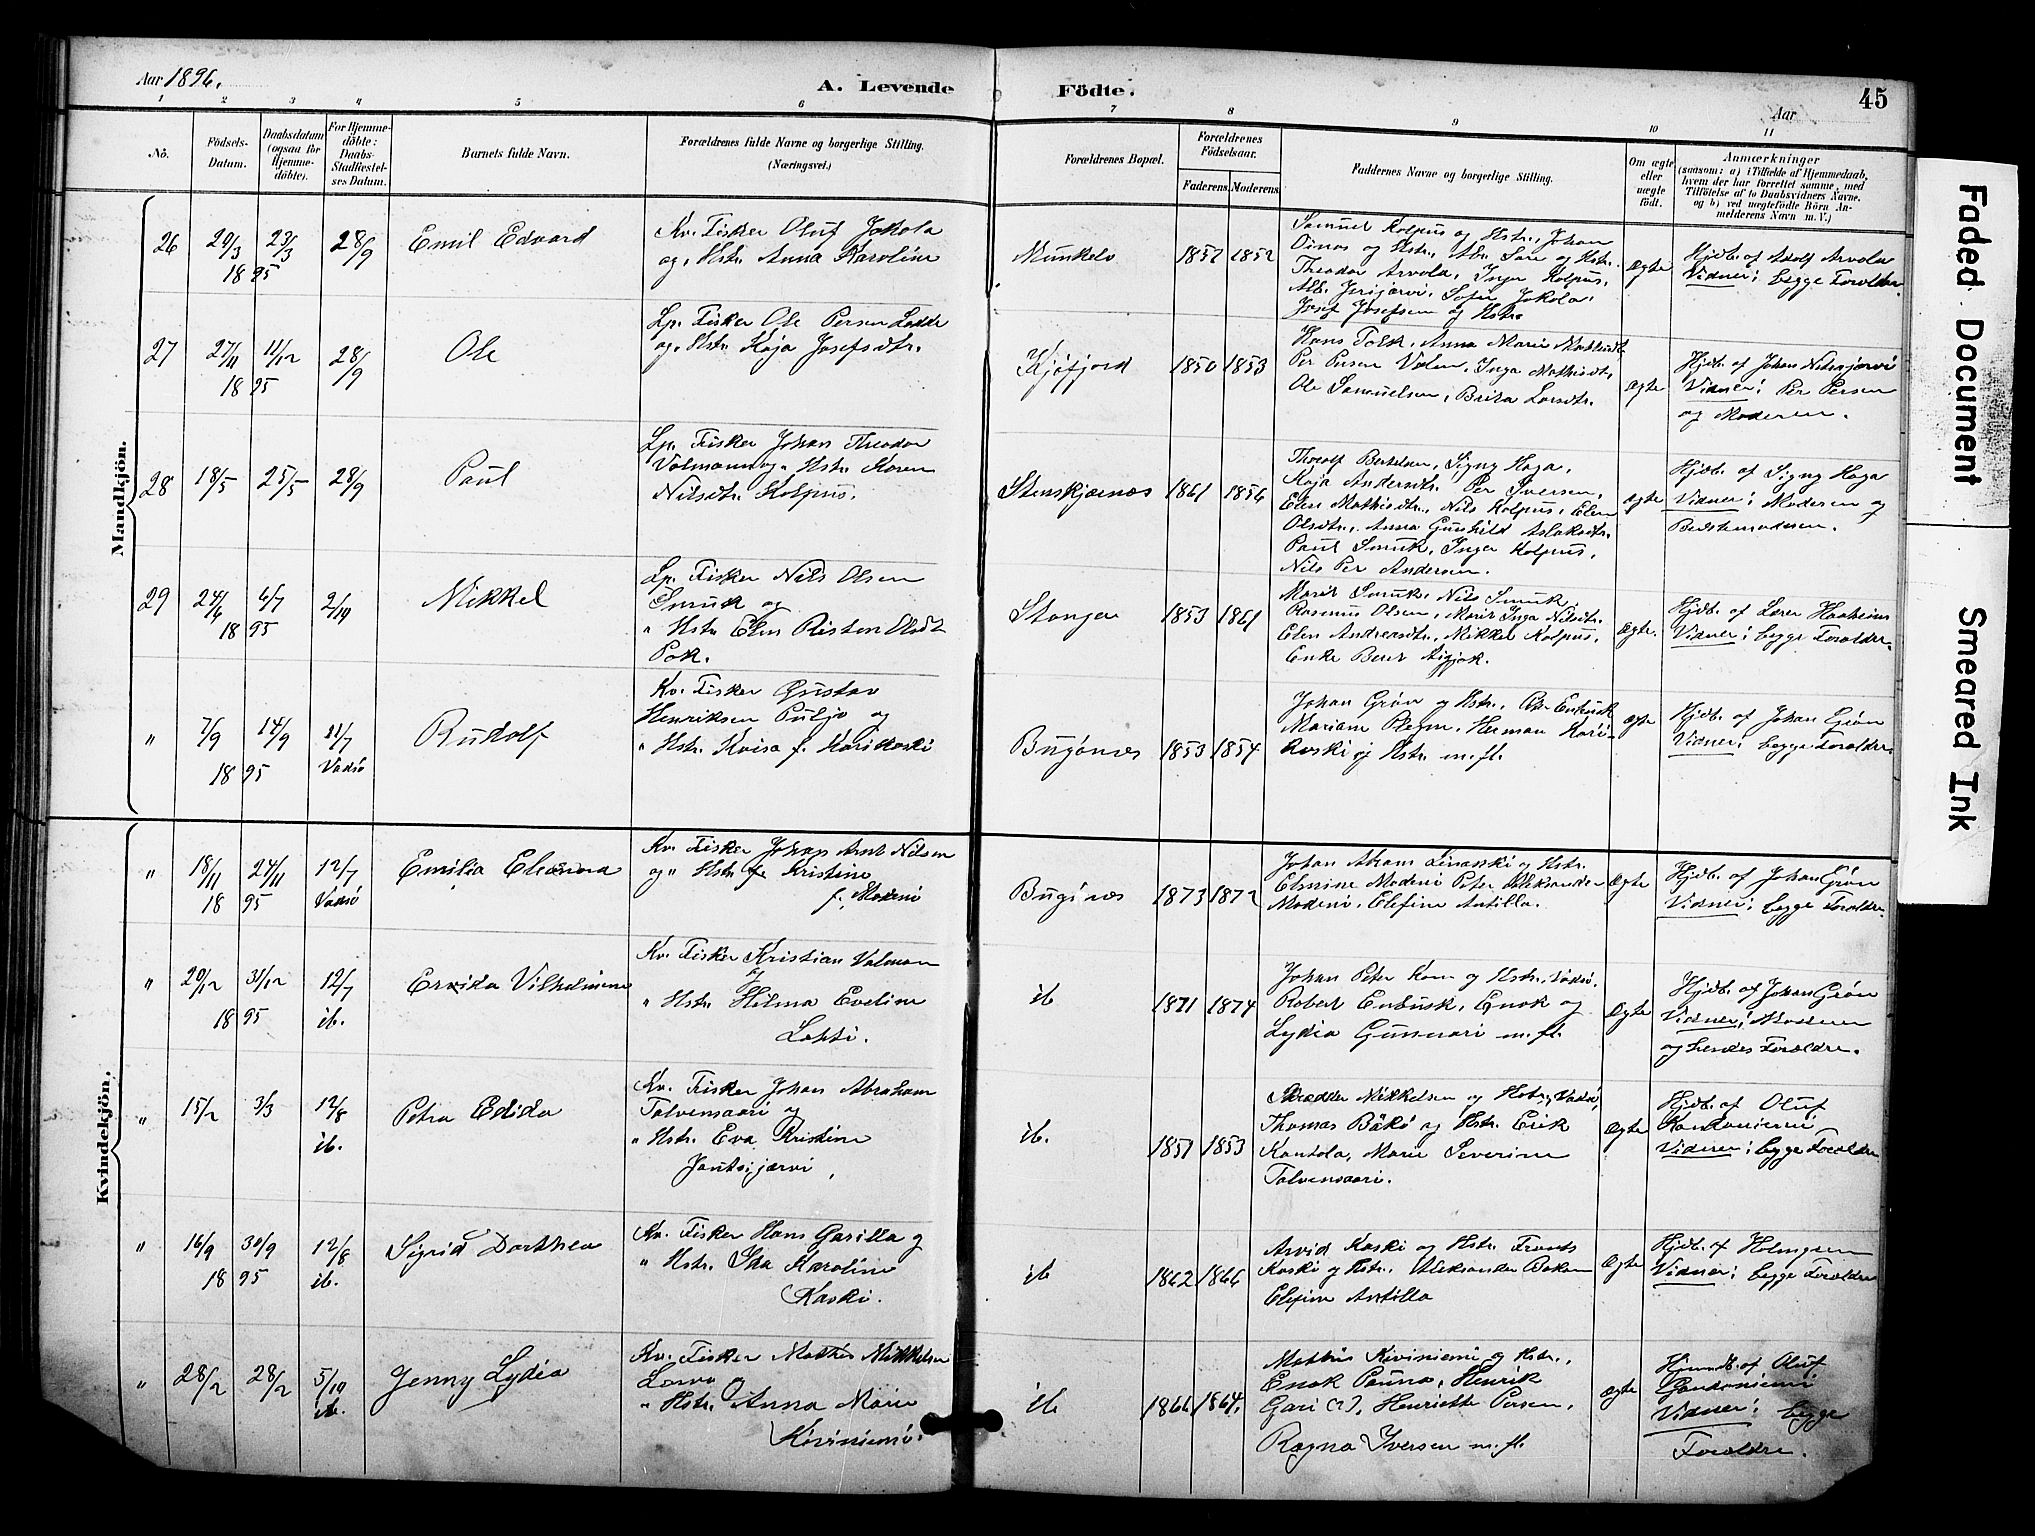 Aar 1896.
A. Levende Födte.
Aar
45
1 2 3 4 5 6 7 8 9 10 11
No.
Födsels-Datum.
Daabsdatum (ogsaa for Hjemme-döbte).
For Hjemme-döbte: Daabs-Stadfæstel-ses Datum.
Barnets fulde Navn.
Forældrenes fulde Navne og borgerlige Stilling.
(Næringsvei.)
Forældrenes Bopæl.
Forældrenes Födselsaar.
Faderens. Moderens.
Faddernes Navne og borgerlige Stilling.
Om ægte eller uægte födt.
Anmærkninger
(saasom: a) i Tilfælde af Hjemmedaab, hvem der har forrettet samme, med Tilföielse af to Daabsvidners Navne, og b) ved uægtefödte Börn An-melderens Navn m. V.)
Mandkjön.
26 29/3 1895 23/3 28/9 Emil Edvard
Kv. Fisker Oluf Jokola
og Hstr. Anna Karoline
Munkelv 1852 1852
Samuel Kolpus og Hstr., Johan
Oinas og Hstr., Abr. Sare og Hstr.
Theodor Arvola, Inga Kolpus,
Alb. Jerijærvi, Sofie Jokola,
Josef Josefsen og Hstr.
Ægte
Hjdb. af Adolf Arvola
Vidner: begge Forældre
27 27/11 1895 11/12 28/9 Ole
Lp. Fisker Ole Persen Ladde
og Hstr. Kaja Josefsdtr.
Kjøfjord 1850 1853
Hans Tolk, Anna Marie Mathisdtr
Per Persen Valen, Inga Mathisdtr.
Ole Samuelsen, Brita Larsdtr.
Ægte
Hjdb. af Johan Nilsenjærvi
Vidner: Per Persen
og Moderen.
28 18/5 25/5 28/9 Paul
Lp. Fisker Johan Theodor
Valmann og Hstr. Karen
Nilsdtr. Kolpus.
Stenskjærnæs 1861 1856
Thorolf Bertelsen, Signy Haga,
Kaja Andersdtr. Per Iversen,
Elen Mathisdtr., Nils Kolpus, Elen
Olsdtr., Anna Gunhild Aslaksdtr.
Paul Smuk, Inger Kolpus,
Nils Per Andersen.
Ægte
Hjdb. af Signy Haga
Vidner: Moderen og
Bedstemoderen.
29 24/6 1895 6/7 2/10 Mikkel
Lp. Fisker Nils Olsen
Smuk og
" Hstr. Elen Risten Olsdt
Pok.
Stanger 1853 1861
Marit Smuk, Nils Smuk,
Rasmus Olsen, Marit Inga Nilsdtr.
Elen Andersdtr., Mikkel Kolpus,
Enke Beret Aigjok.
Ægte.
Hjdb. af Lærer Haaheim
Vidner: begge Forældre
" 7/9 1895 14/9 11/7 Vadsø Rudolf
Kv. Fisker Gustav
Henriksen Puljo og
" Hstr. Kaisa f. Karikoski
Bugønæs 1853 1854
Johan Grøn og Hstr., Ole Enbusk
Mariane Plegm, Herman Kari-
Koski og Hstr. m.fl.
Ægte
Hjdb. af Johan Grøn
Vidner: begge Forældre
Kvindekjön.
" 18/11 1895 24/11 12/7 Vadsø Emilia Eleonora
Kv. Fisker Johan Arnt Nilsen
og " Hstr. Kristine
f. Modeni
Bugønæs 1873 1872
Johan Abram Linakoski og Hstr.
Elmine Modeni Peter Aleksander
Modeni, Elefine Antilla.
Ægte
Hjdb. af Johan Grøn
Vidner: begge Forældre.
" 29/12 1895 31/12 12/7 ib. Ervida Vilhelmine
Kv. Fisker Kristian Valman
og
" Hstr. Hilma Eveline
Lahti.
ib 1871 1874
Johan Peter Kom og Hstr., Vadsø.
Robert Enbusk, Enok og
Lydia Gunnari m.fl.
Ægte
Hjdb. af Johan Grøn
Vidner: Moderen
og hendes Forældre.
" 15/2 3/3 12/8 ib. Petra Edida
Kv. Fisker Johan Abraham
Talvensaari og
" Hstr. Eva Kristine
Jautsijærvi,
ib. 1851 1853
Skrædder Mikkelsen og Hstr., Vadsø,
Thomas Bäkö og Hstr. Erik
Kantola, Marie Severine
Talvensaari.
Ægte
Hjdb. af Oluf
Kantoniemi
Vidner: begge Forældre
" 16/9 1895 30/9 12/8 ib. Sigrid Dorthea
Kv. Fisker Hans Garilla og
" Hstr. Ida Karoline
Kaski.
ib 1862 1866
Arvid Koski og Hstr. Frants
Koski og Hstr., Aleksander Bakan
Elefine Antilla
Ægte
Hjdb. af Holmgren
Vidner: begge Forældre
" 28/2 28/2 5/10 ib. Jenny Lydia
Kv. Fisker Mathis Mikkelsen
Larva og
" Hstr. Anna Marie
Kiviniemi.
ib 1866 1864.
Mathis Kiviniemi og Hstr.,
Enok Pauna, Henrik
Gari (?), Henriette Persen,
Ragna Iversen m.fl.
Ægte
Hjemdb. af Oluf
Gandoniemi
Vidner: begge
Forældre.
Faded Document
Smeared Ink